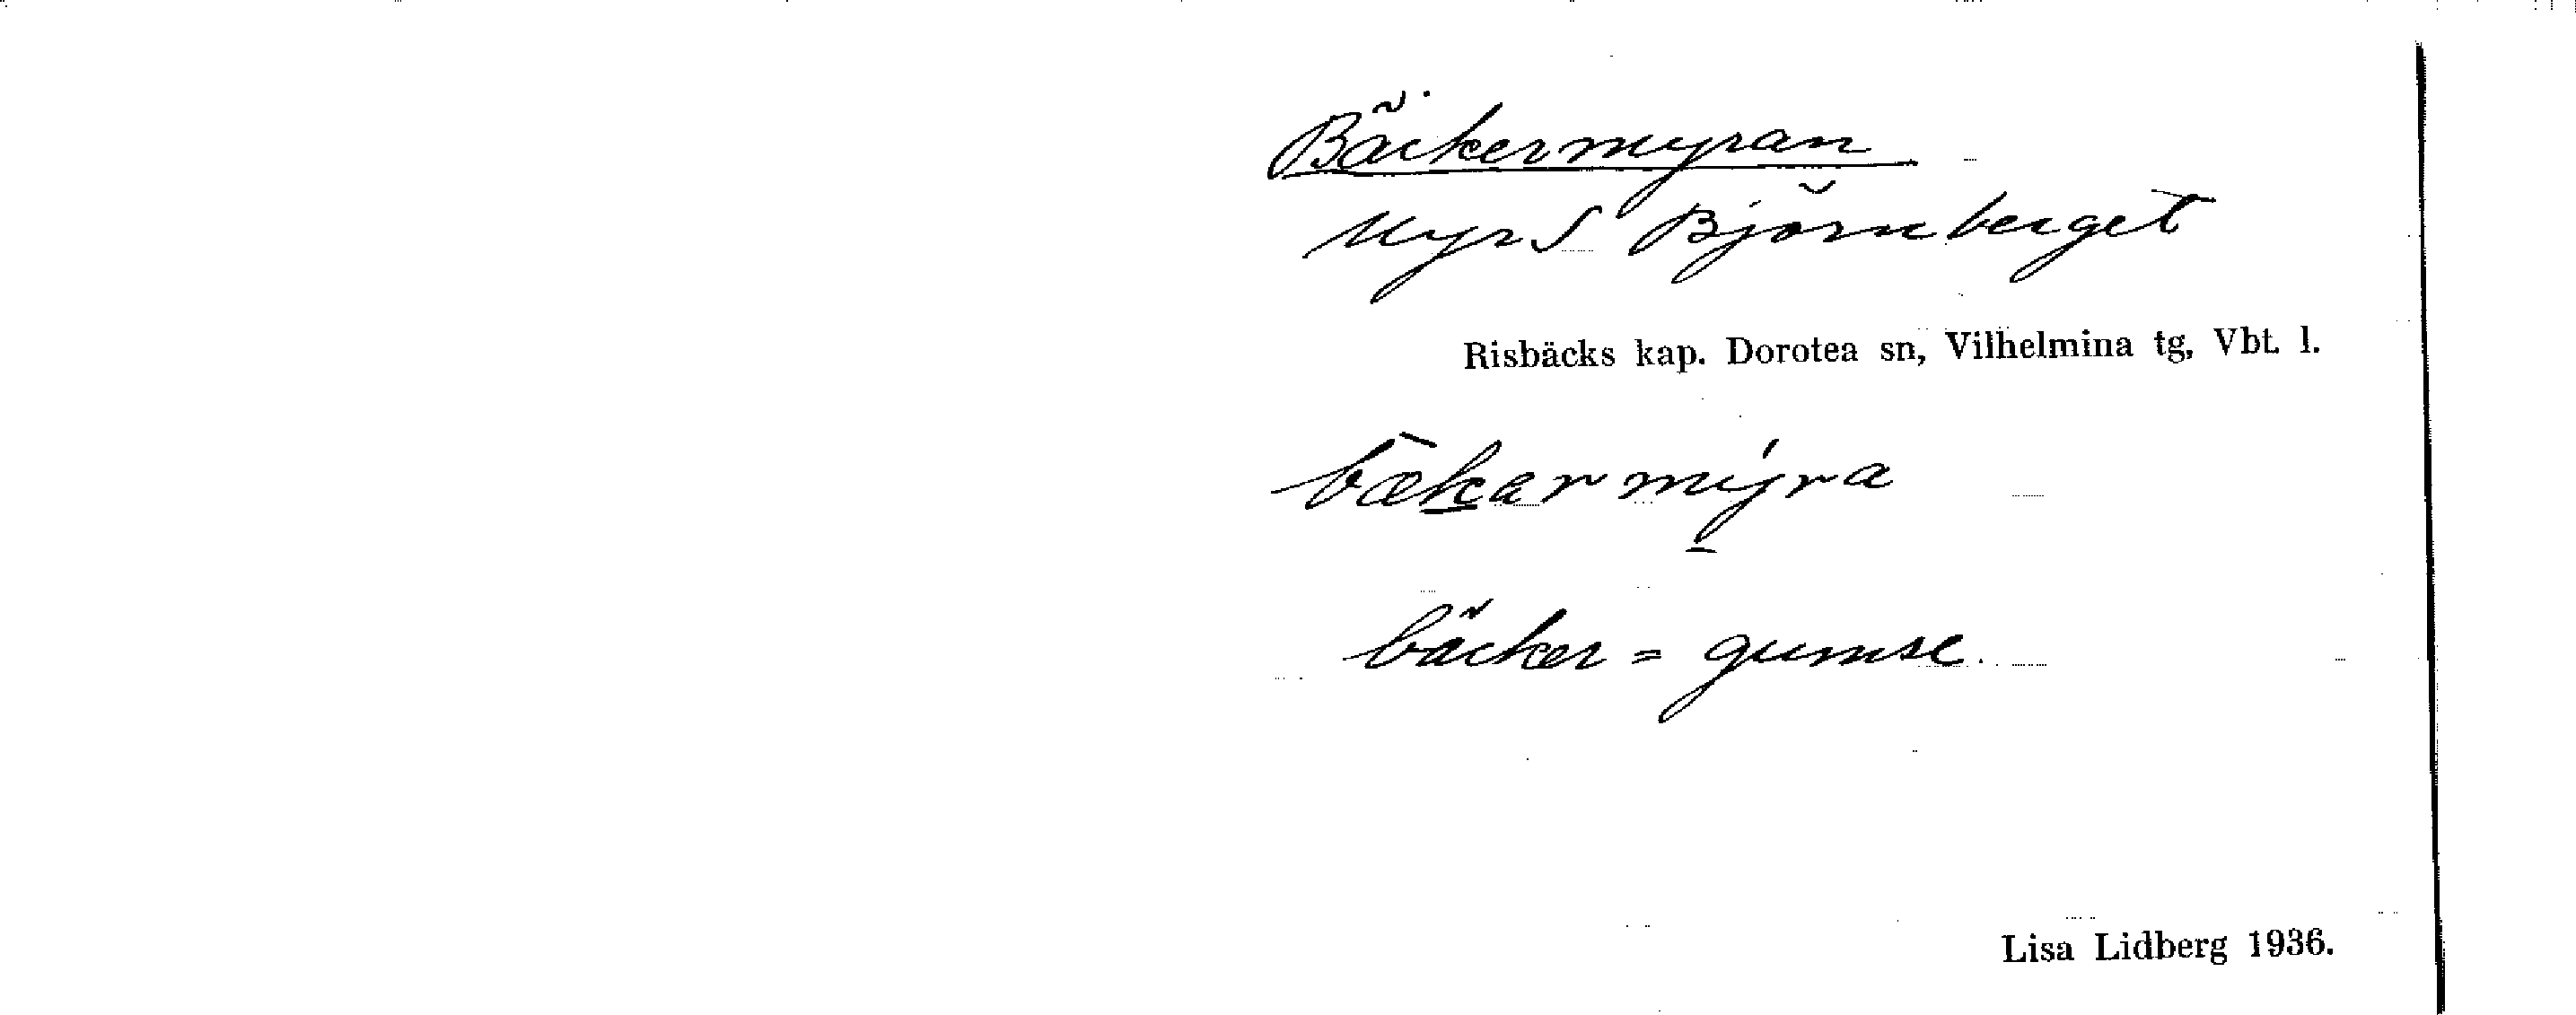 Bäckermyran
Myr S Björnberget
Risbäcks kap. Dorotea sn, Vilhelmina tg, Vbt. l.
bækarmýra
bäcker = gumse.
Lisa Lidberg 1936.